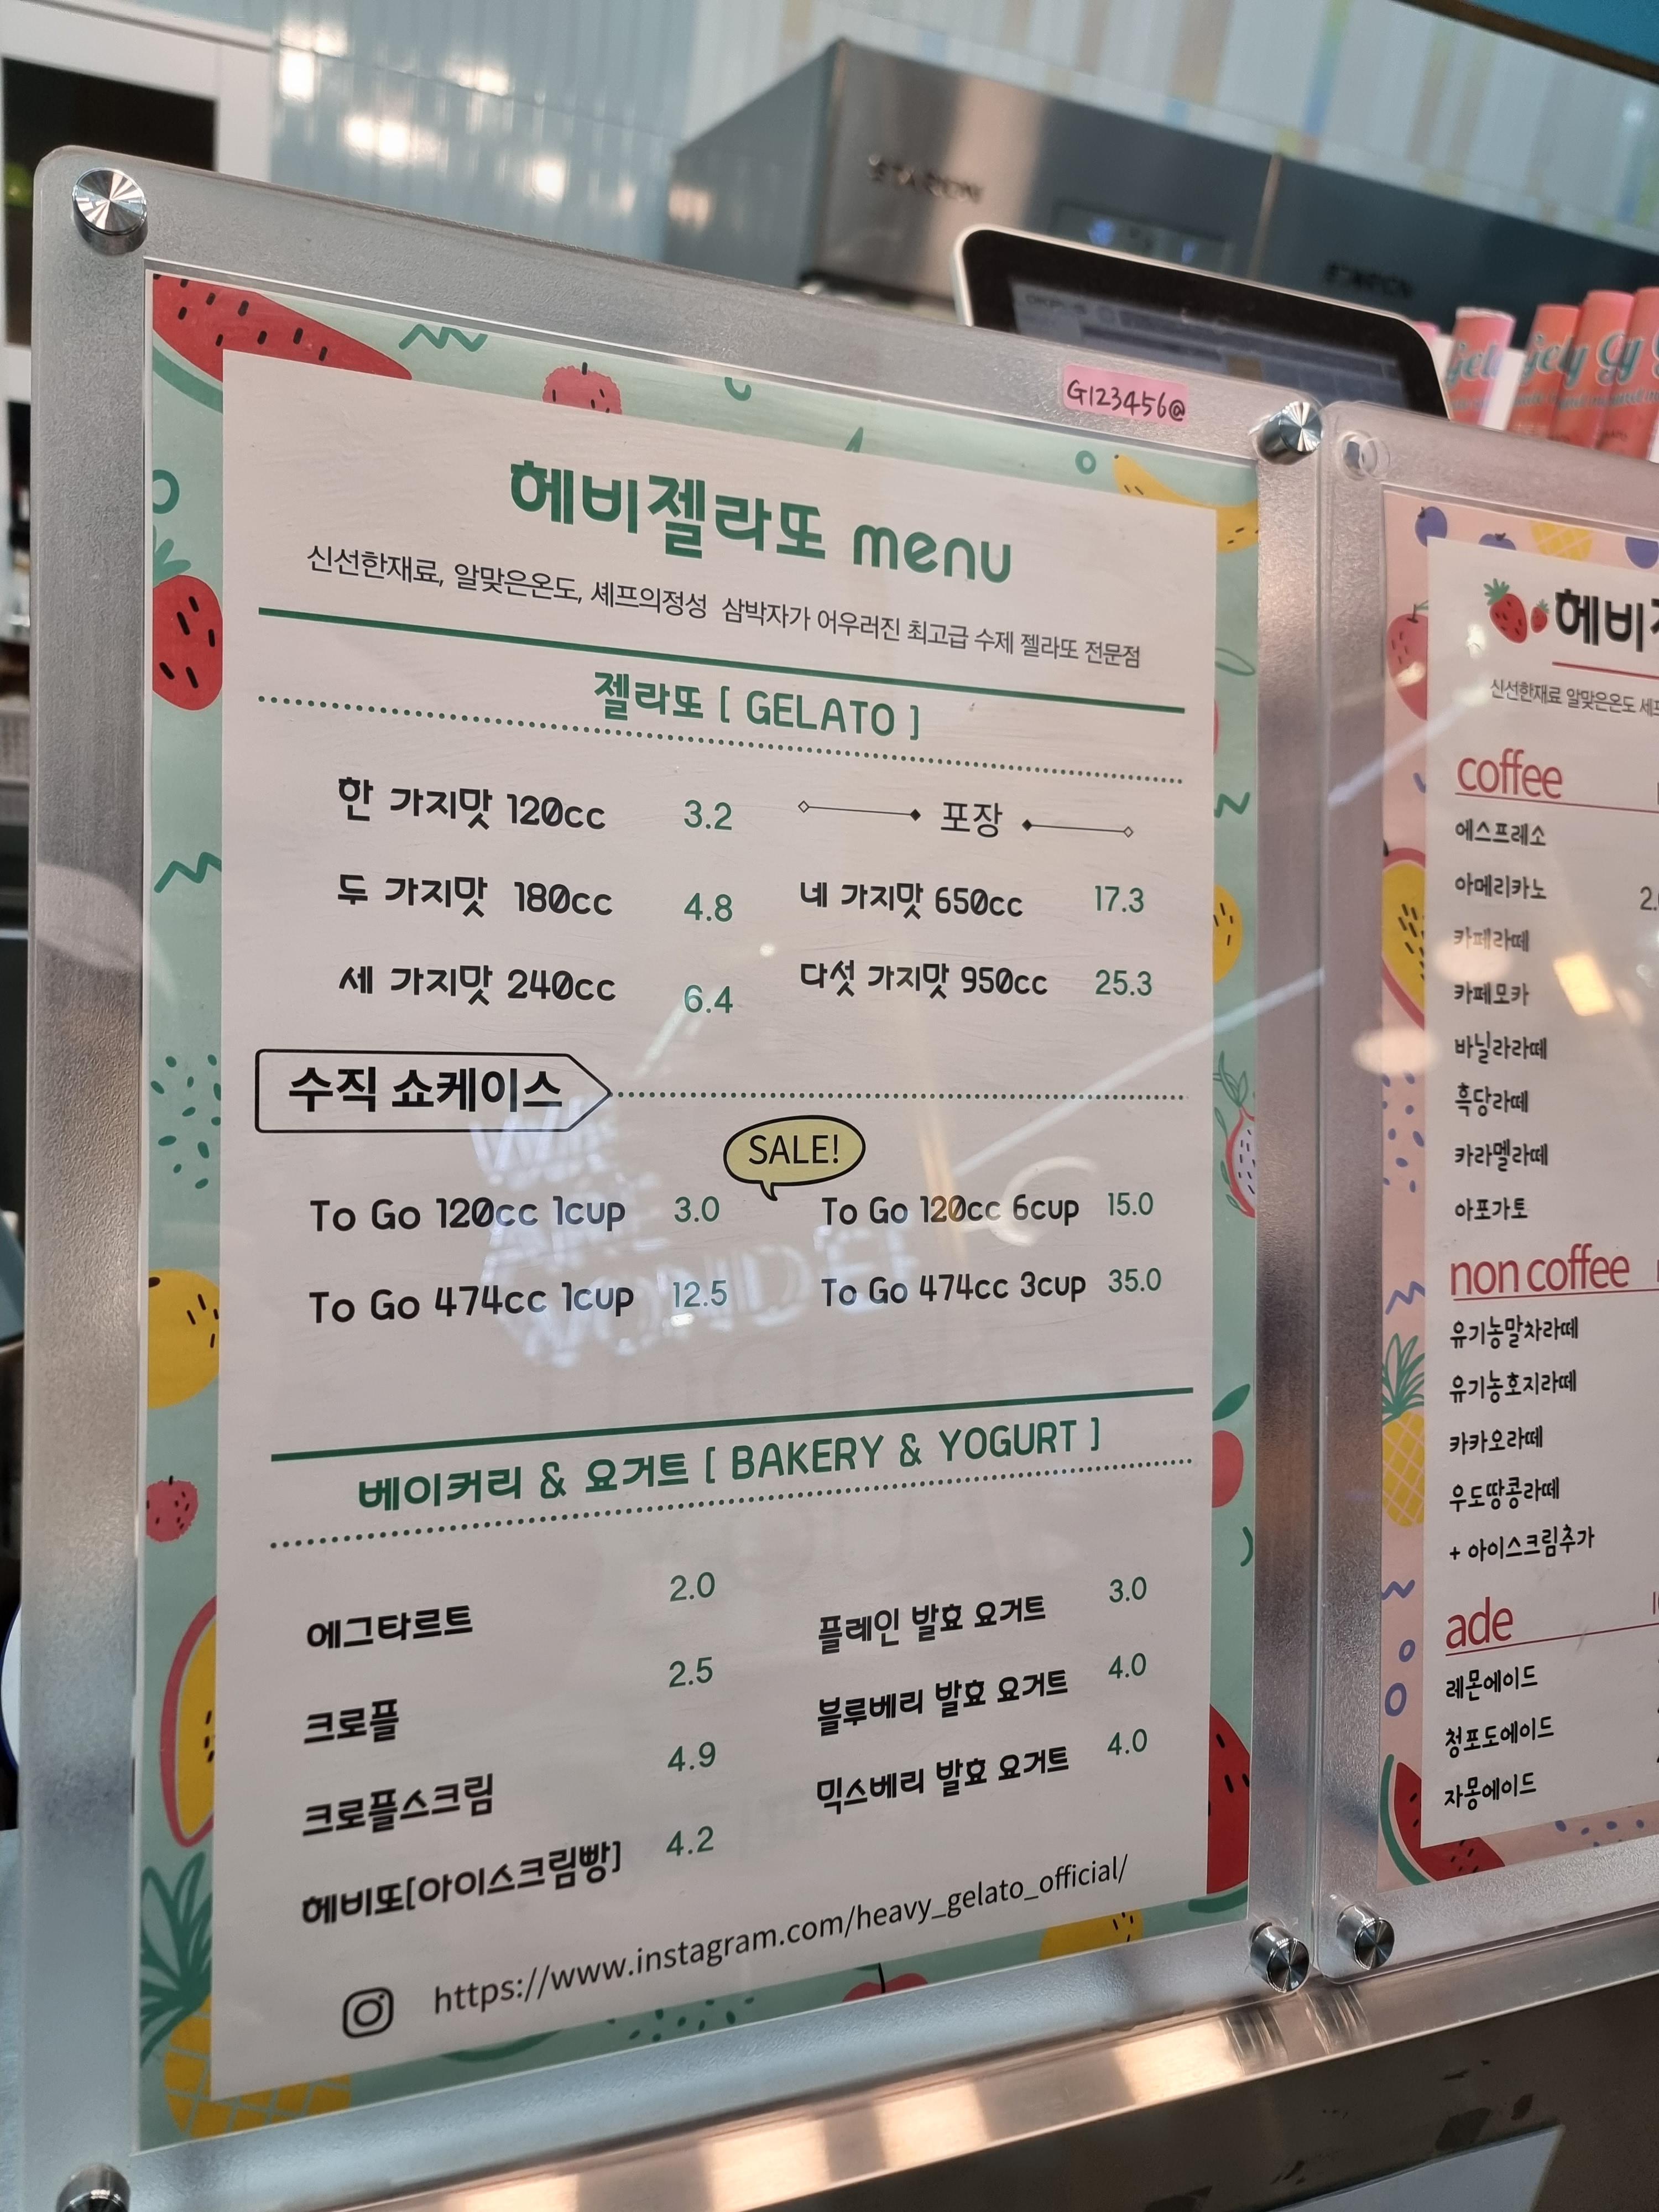 G123456@
헤비젤라또 menu
신선한재료, 알맞은온도, 셰프의정성 삼박자가 어우러진 최고급 수제 젤라또 전문점
젤라또 [ GELATO ]
한 가지맛 120cc 3.2
두 가지맛 180cc 4.8
세 가지맛 240cc 6.4
포장
네 가지맛 650cc 17.3
다섯 가지맛 950cc 25.3
수직 쇼케이스
SALE!
To Go 120cc 1cup 3.0
To Go 120cc 6cup 15.0
To Go 474cc 1cup 12.5
To Go 474cc 3cup 35.0
베이커리 & 요거트 [ BAKERY & YOGURT ]
에그타르트 2.0
크로플 2.5
크로플스크림 4.9
헤비또[아이스크림빵] 4.2
플레인 발효 요거트 3.0
블루베리 발효 요거트 4.0
믹스베리 발효 요거트 4.0
https://www.instagram.com/heavy_gelato_official/
헤비
신선한재료 알맞은온도
coffee
에스프레소
아메리카노
카페라떼
카페모카
바닐라라떼
흑당라떼
카라멜라떼
아포가토
non coffee
유기농말차라떼
유기농호지라떼
카카오라떼
우도땅콩라떼
+ 아이스크림추가
ade
레몬에이드
청포도에이드
자몽에이드